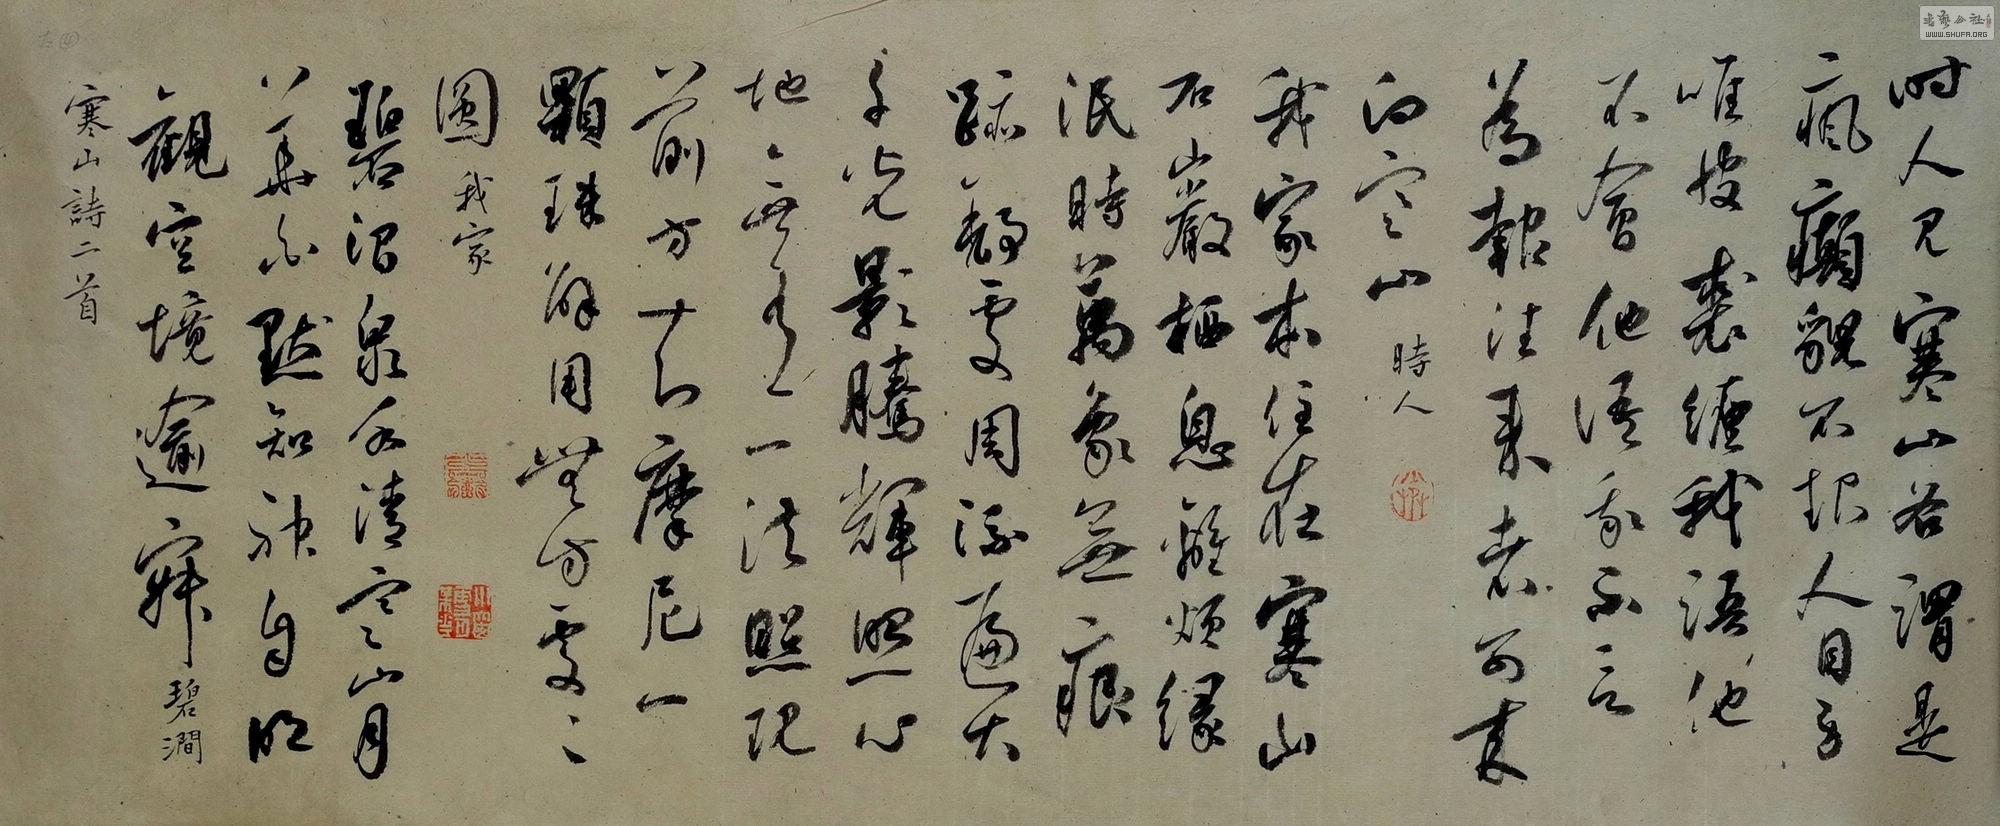 时人见寒山各谓是
疯癫貌不起人目身
唯布裘缠我语他
不会他语我不言
为报往来者可来
向寒山 時人
我家本住在寒山
石巖栖息離烦缘
泯時萬象無痕
跡舒處周流遍大
千光影騰輝照心
地無有一法當現
前方知摩尼一
顆珠解用無方處々
圆 我家
碧澗泉水清寒山月
華白默知神自明
觀空境逾寂 碧澗
寒山詩二首
書藝公社
WWW.SHUFA.ORG